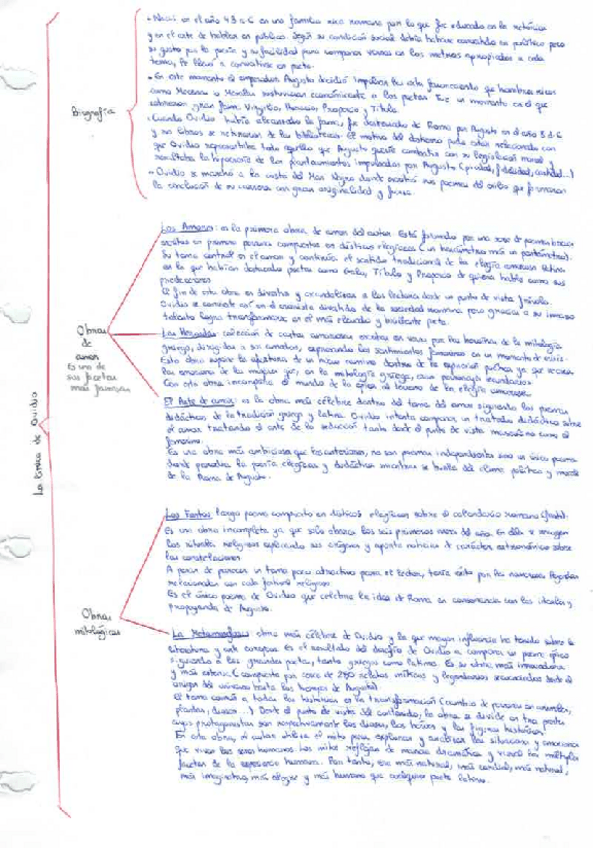 La lírica de Ovidio
Biografía
• Nació en el año 43 a.C en una familia rica romana por lo que fue educado en la retórica
y en el arte de hablar en público. Según su condición social debía haberse convertido en político pero
su gusto por la poesía y su facilidad para componer versos en los metros apropiados a cada
tema, le llevó a convertirse en poeta.
• En este momento el emperador Augusto decidió impulsar las artes favoreciendo que hombres ricos
como Mecenas o Mesala sostuvieran económicamente a los poetas. Fue un momento en el que
obtuvieron gran fama Virgilio, Horacio, Propercio y Tibulo
• Cuando Ovidio había alcanzado la fama, fue desterrado de Roma por Augusto en el año 8 d.C
y sus libros se retiraron de las bibliotecas. El motivo del destierro pudo estar relacionado con
que Ovidio representaba todo aquello que Augusto quería combatir con su legislación moral y
la hipocresía de los planteamientos impulsados por Augusto (piedad, fidelidad, castidad...)
• Ovidio se marchó a la costa del Mar Negro donde escribió sus poemas del exilio que formaron
la conclusión de su carrera con gran originalidad y fuerza.
Obras
de
amor
Es una de
sus facetas
más famosas
Los Amores: es la primera obra de amor del autor. Está formada por una serie de poemas
escritos en primera persona compuestos en dísticos elegíacos (un hexámetro más un pentámetro).
Su tema central es el amor y continúa el sentido tradicional de la elegía amorosa latina
en la que habían destacado poetas como Galo, Tibulo y Propercio de quienes habla como sus
predecesores
El fin de esta obra es divertir y a los lectores desde un punto de vista
Ovidio se convierte así en el cronista divertido de la sociedad romana pero gracias a su inmenso
talento logra transformarse en el más elevado y brillante poeta.
Las Heroidas: colección de cartas amorosas escritas en verso por las heroínas de la mitología
griega, dirigidas a sus amados, expresando los sentimientos femeninos en un momento de crisis.
Esta obra supone la apertura de un nuevo camino dentro de la expresión poética ya que recrea
las emociones de las mujeres que, en la mitología griega, eran personajes secundarios
Con esta obra incorpora el mundo de la épica al terreno de la elegía amorosa.
El Arte de amar: es la obra más célebre dentro del tema del amor siguiendo los poemas
didácticos de la tradición griega y latina. Ovidio intenta componer un tratado didáctico sobre
el amor tratando el arte de la seducción tanto desde el punto de vista masculino como el
femenino.
Es una obra más ambiciosa que las anteriores, no son poemas independientes sino un único poema
donde parodia la poesía elegíaca y didáctica mientras se burla del clima político y moral
de la Roma de Augusto.
Obras
mitológicas
Los Fastos: largo poema compuesto en dísticos elegíacos sobre el calendario romano (fasti).
Es una obra incompleta ya que sólo abarca los seis primeros meses del año. En ella se recogen
los rituales religiosos explicando sus orígenes y aporta noticias de carácter astronómico sobre
las constelaciones
A pesar de parecer un tema poco atractivo para el lector, tenía éxito por las numerosas leyendas
relacionadas con cada festival religioso
Es el único poema de Ovidio que celebra la idea de Roma en consonancia con los ideales y
propaganda de Augusto.
La Metamorfosis: obra más célebre de Ovidio y la que mayor influencia ha tenido sobre la
literatura y arte europeos. Es el resultado del desafío de Ovidio a componer un poema épico
siguiendo a los grandes poetas, tanto griegos como latinos. Es su obra más innovadora
y más extensa (compuesta por cerca de 250 relatos míticos y legendarios desde el
origen del universo hasta los tiempos de Augusto)
El tema común a todas las historias es la transformación (cambio de personas en animales,
piedras, dioses...) Desde el punto de vista del contenido, la obra se divide en tres partes
cuyos protagonistas son respectivamente los dioses, los héroes y las figuras históricas
En esta obra, el autor utiliza el mito para explorar y analizar las situaciones y emociones
que viven los seres humanos. Los mitos reflejan de manera dramática y visual las múltiples
facetas de la experiencia humana. Por tanto, es más natural, más cordial, más natural,
más imaginativo, más alegre y más humano que cualquier poeta latino.